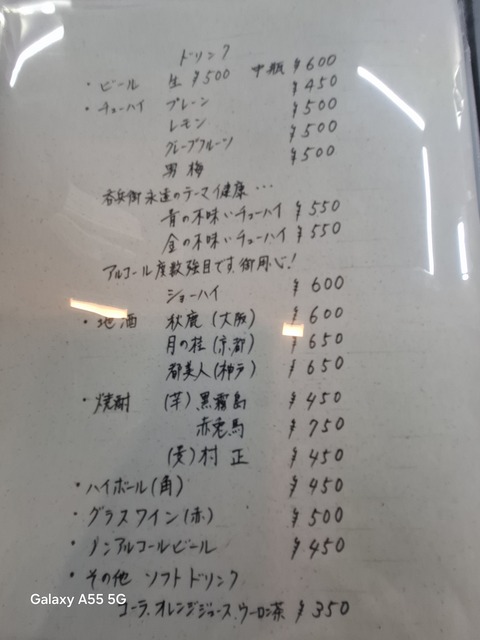 ドリンク
・ビール 生 ¥500 中瓶 ¥600
・チューハイ プレーン ¥450
レモン ¥500
グレープフルーツ ¥500
男梅 ¥500
呑兵衛永遠のテーマ健康…
青の不味いチューハイ ¥550
金の不味いチューハイ ¥550
アルコール度数強目です。御用心!
ショーハイ ¥600
・地酒 秋鹿(大阪) ¥600
月の桂(京都) ¥650
都美人(神戸) ¥650
・焼酎 (芋)黒霧島 ¥450
赤兎馬 ¥750
(麦)村正 ¥450
・ハイボール(角) ¥450
・グラスワイン(赤) ¥500
・ノンアルコールビール ¥450
・その他 ソフトドリンク
コーラ、オレンジジュース、ウーロン茶 ¥350
Galaxy A55 5G